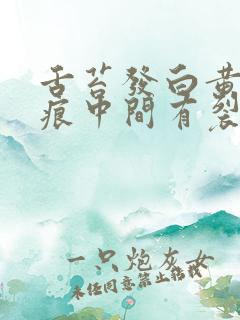 舌苔發白黄
痕中間有裂
一只炮灰女
未经同意禁止转载